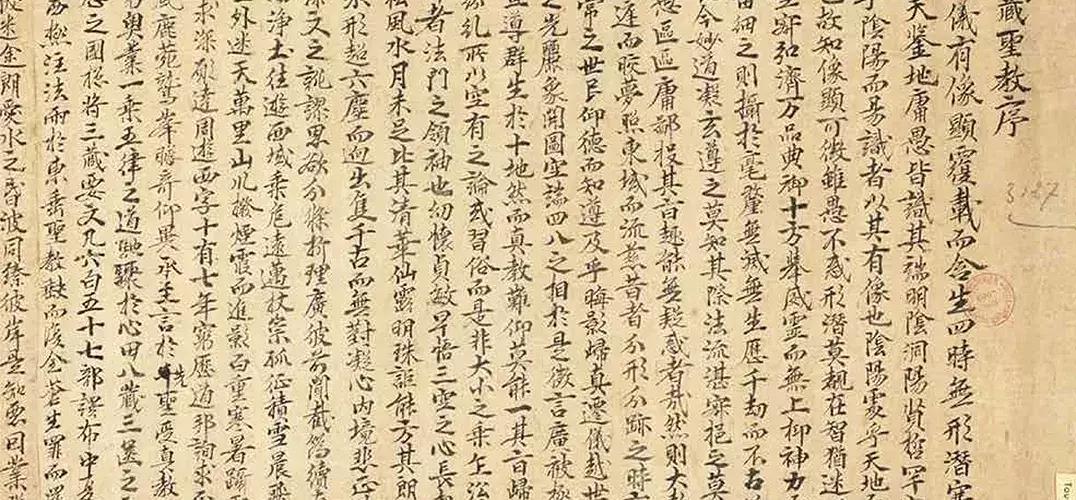 藏聖教序
儀有像顯覆載而含生四時無形潛寒
天鑒地庸愚皆識其端明陰洞陽賢哲罕
乎陰陽而易識者以其有像也陰陽處乎天地
也故知像顯可徵雖愚不惑形潛莫覩在智猶迷
寂弘濟万品典御十方舉威靈而無上抑神力
細之則攝於毫釐無滅無生歷千劫而不古
今妙道凝玄遵之莫知其際法流湛寂挹之莫
愚區區庸鄙投其旨趣能無疑惑者哉然則大
庭而皎夢照東域而流慈昔者分形分跡之時言
常之世民仰德而知遵及乎晦影歸真遷儀越世
光麗象開圖空端四八之相於是微言廣被拯
導群生於十地然而真教難仰莫能一其旨歸
紛乩所以空有之論或習俗而是非大小之乘乍沿
者法門之領袖也幼懷貞敏早悟三空之心長
松風水月未足比其清華仙露明珠詎能方其朗
形超六塵而迥出隻千古而無對凝心內境悲正
深文之訛謬思欲分條析理廣彼前聞截偽續
淨土往遊西域乘危遠邁杖策孤征積雪晨飛
外迷天萬里山川撥煙霞而進影百重寒暑躡
求深願達周遊西宇十有七年窮歷道邦詢求正
鹿苑鷲峯瞻奇仰異承至言於先聖受真教
奧業一乘五律之道馳驟於心田八藏三篋之
之國惣將三藏要文凡六百五十七部譯布中
極注法雨於東垂聖教缺而復全蒼生罪而還
迷途朗愛水之昏波同臻彼岸是知惡因業
3127